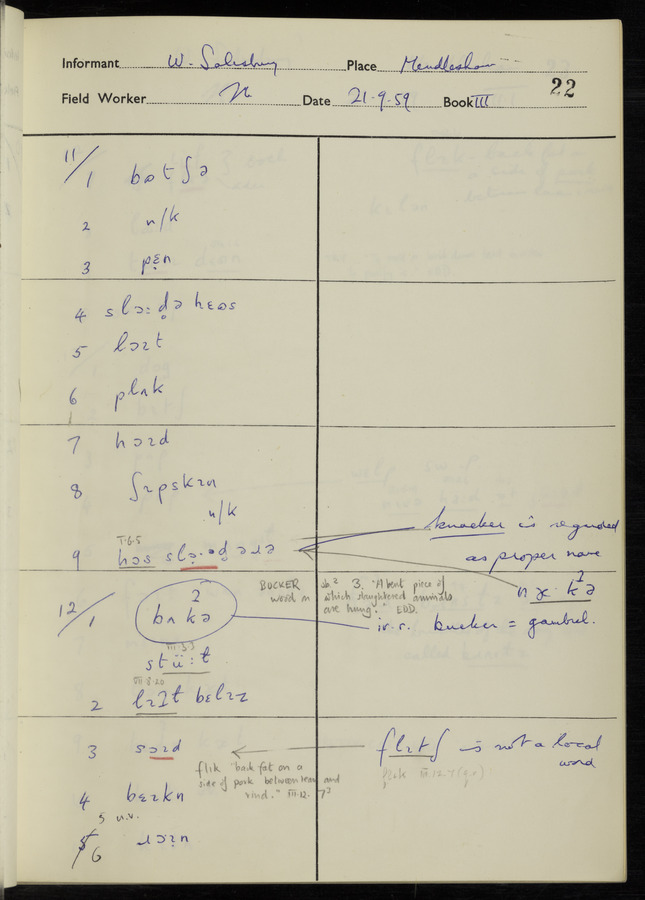 Informant W. Salisbury Place Mendlesham
22
Field Worker Date 21·9·59 Book III
11/1 bɷtʃə
2 n/k
3 pɛ̣n
4 slɔ:də hɛɷs
5 lɔɪt
6 plʌk
7 hɔɪd
8 ʃɪpskɪn
n/k
knacker is regarded
T·6·5
9 hɔs
as proper name
12/1 bʌkə
BUCKER
word n
sb.² 3. "A bent piece of
which slaughtered animals
are hung." EDD.
i.r. bucker = gambrel.
stü:t
III·3·3
2 lɪt bɛlɪz
3 sɔɪd
flitʃ is not a local
word
flik "back fat on a
side of pork between lean and
rind." III·12·7³
4 bɛɪkn
5 n.v.
5/6 ɹɔɪn